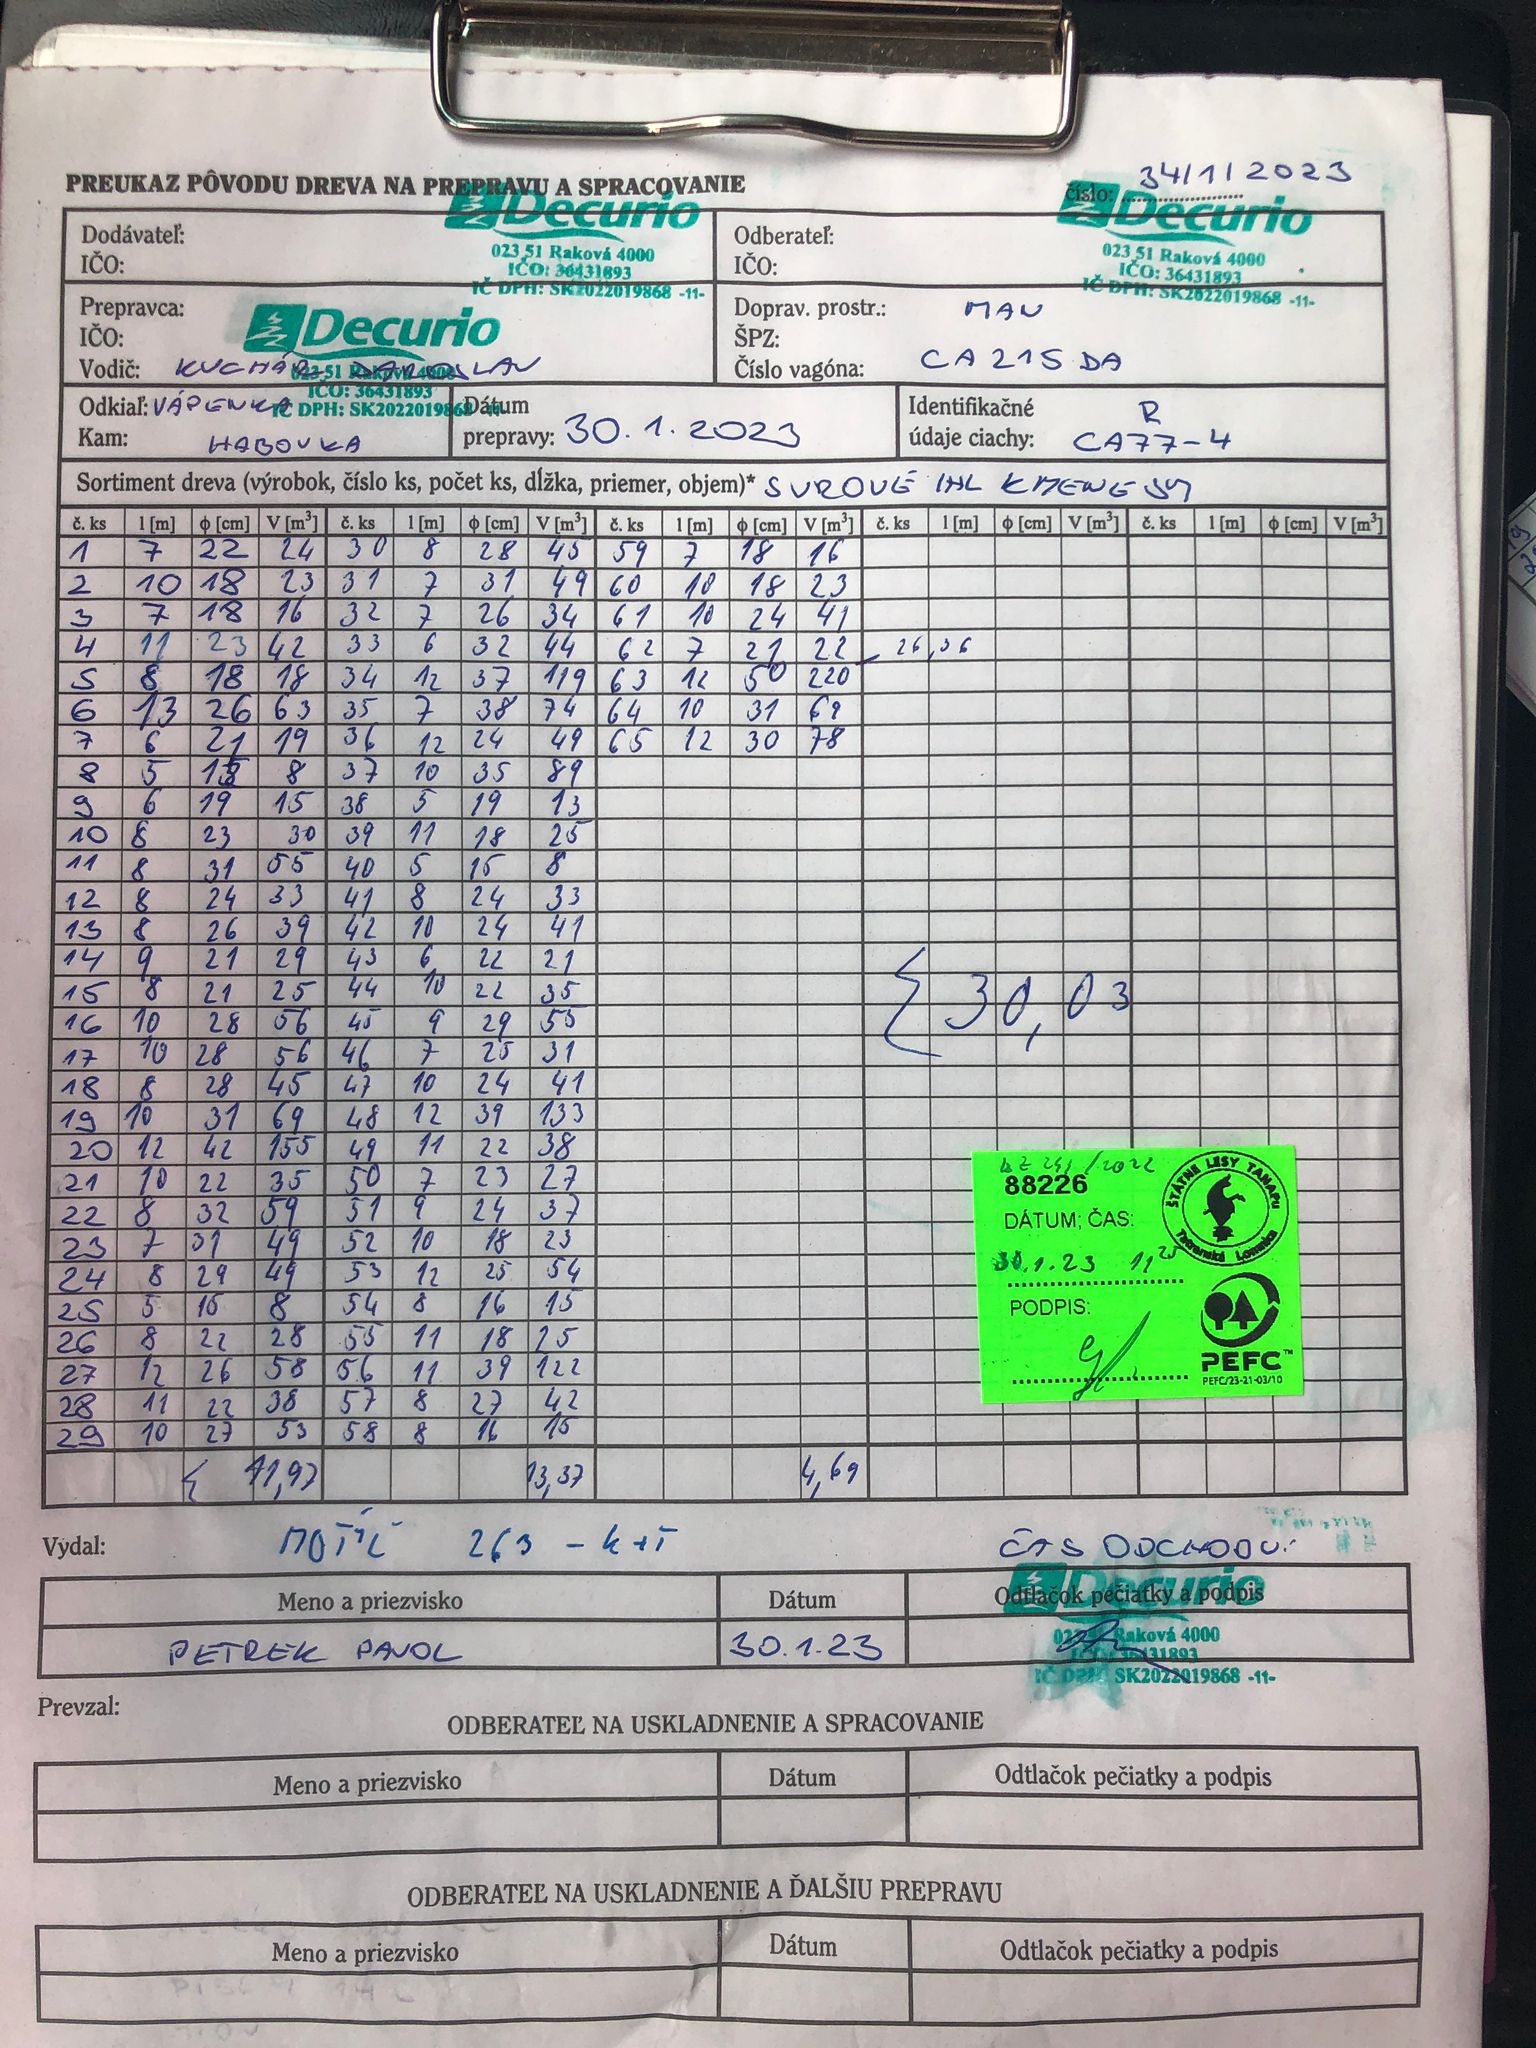 PREUKAZ PÔVODU DREVA NA PREPRAVU A SPRACOVANIE
číslo: 34/1/2023
Dodávateľ:
IČO:
Decurio
023 51 Raková 4000
IČO: 36431893
IČ DPH: SK2022019868 -11-
Odberateľ:
IČO:
Decurio
023 51 Raková 4000
IČO: 36431893
IČ DPH: SK2022019868 -11-
Prepravca:
IČO:
Vodič: KUCHÁR JAROSLAV
Decurio
023 51 Raková 4000
IČO: 36431893
IČ DPH: SK2022019868 -11-
Doprav. prostr.: MAN
ŠPZ:
Číslo vagóna: CA 215 DA
Odkiaľ: VÁPENKA
Kam: HABOVKA
Dátum
prepravy: 30.1.2023
Identifikačné R
údaje ciachy: CA77-4
Sortiment dreva (výrobok, číslo ks, počet ks, dĺžka, priemer, objem)* SUROVÉ IHL KMENE
č. ks l [m] ϕ [cm] V [m³] č. ks l [m] ϕ [cm] V [m³] č. ks l [m] ϕ [cm] V [m³] č. ks l [m] ϕ [cm] V [m³] č. ks l [m] ϕ [cm] V [m³]
1 7 22 24 30 8 28 45 59 7 18 16
2 10 18 23 31 7 31 49 60 10 18 23
3 7 18 16 32 7 26 34 61 10 24 41
4 11 23 42 33 6 32 44 62 7 21 22 26,36
5 8 18 18 34 12 37 119 63 12 50 220
6 13 26 63 35 7 38 74 64 10 31 69
7 6 21 19 36 12 24 49 65 12 30 78
8 5 15 8 37 10 35 89
9 6 19 15 38 5 19 13
10 8 23 30 39 11 18 25
11 8 31 55 40 5 15 8
12 8 24 33 41 8 24 33
13 8 26 39 42 10 24 41
14 9 21 29 43 6 22 21
15 8 21 25 44 10 22 35
16 10 28 56 45 9 29 55
17 10 28 56 46 7 25 31
18 8 28 45 47 10 24 41
19 10 31 69 48 12 39 133
20 12 42 155 49 11 22 38
21 10 22 35 50 7 23 27
22 8 32 59 51 9 24 37
23 7 31 49 52 10 18 23
24 8 29 49 53 12 25 54
25 5 15 8 54 8 16 15
26 8 22 28 55 11 18 25
27 12 26 58 56 11 39 122
28 11 22 38 57 8 27 42
29 10 27 53 58 8 16 15
11,97 13,37 4,69
30,03
88226
DÁTUM; ČAS:
30.1.23 11 25
PODPIS:
ŠTÁTNE LESY TANAPU
Tatranská Lomnica
PEFC™
PEFC/23-21-03/10
Vydal: 263
ČAS ODCHODU:
Meno a priezvisko Dátum Odtlačok pečiatky a podpis
PETREK PAVOL 30.1.23
Decurio
023 51 Raková 4000
IČO: 36431893
IČ DPH: SK2022019868 -11-
Prevzal:
ODBERATEĽ NA USKLADNENIE A SPRACOVANIE
Meno a priezvisko Dátum Odtlačok pečiatky a podpis
ODBERATEĽ NA USKLADNENIE A ĎALŠIU PREPRAVU
Meno a priezvisko Dátum Odtlačok pečiatky a podpis